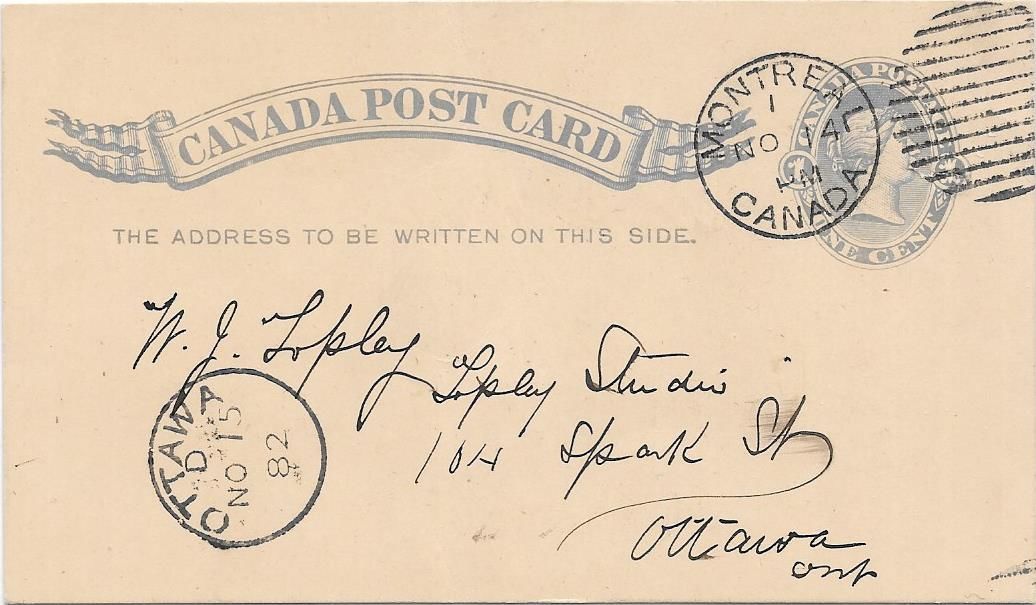 CANADA POST CARD
MONTREAL
1
NO 14
PM
CANADA
CANADA POSTAGE
ONE CENT
THE ADDRESS TO BE WRITTEN ON THIS SIDE.
W. J. Topley
Topley Studio
104 Spark St
Ottawa
Ont
OTTAWA
D
NO 15
82